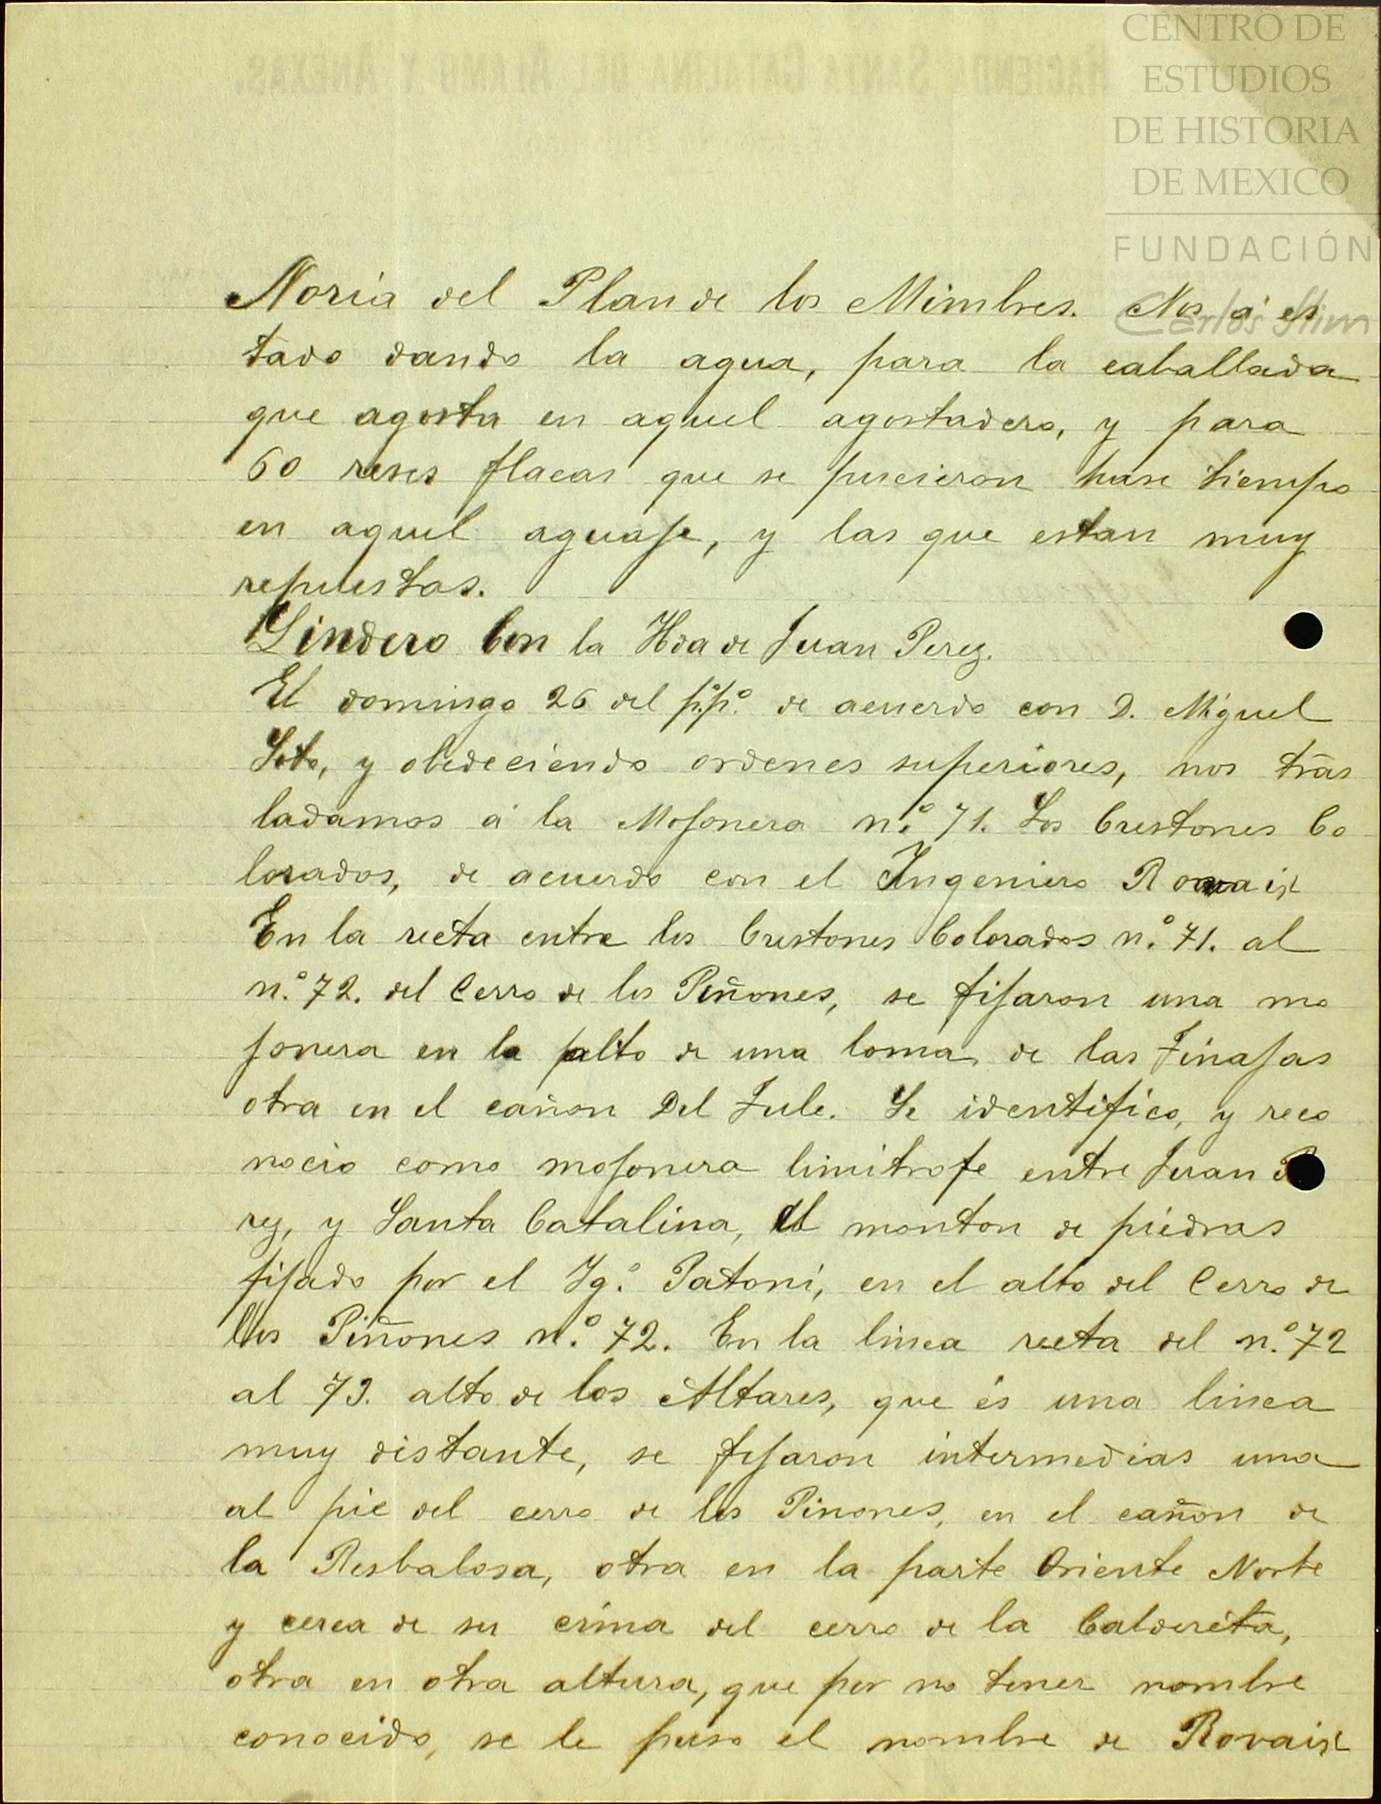 HACIENDA SANTA CATALINA DEL ALAMO Y ANEXAS.
CENTRO DE
ESTUDIOS
DE HISTORIA
DE MEXICO
FUNDACIÓN
Carlos Slim
Noria del Plan de los Mimbres. Nos á es
tado dando la agua, para la caballada
que agosta en aquel agostadero, y para
60 reses flacas que se pucieron hase tiempo
en aquel aguaje, y las que estan muy
repuestas.
Lindero Con la Hda de Juan Perez.
El domingo 26 del p.p.º de acuerdo con D. Miguel
Soto, y obedeciendo ordenes superiores, nos tras
ladamos á la Mojonera n.º 71. Los Crestones Co
lorados, de acuerdo con el Ingeniero Rovaix
En la recta entre los Crestones Colorados n.º 71. al
n.º 72. del Cerro de los Piñones, se fijaron una mo
jonera en lo alto de una loma de las Tinajas
otra en el cañon Del Tule. Se identifico, y reco
nocio como mojonera limitrofe entre Juan Pe
rez, y Santa Catalina, el monton de piedras
fijado por el Yg.º Patoni, en el alto del Cerro de
los Piñones n.º 72. En la linea recta del n.º 72
al 73. alto de los Altares, que és una linea
muy distante, se fijaron intermedias una
al pie del cerro de los Pinones, en el cañon de
la Resbalosa, otra en la parte Oriente Norte
y cerca de su cima del cerro de la Caldereta,
otra en otra altura, que por no tener nombre
conocido, se le puso el nombre de Rovaix